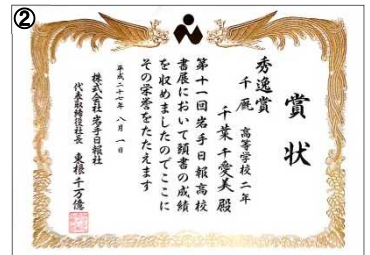 ②
賞状
秀逸賞
千厩 高等学校 二年
千葉千愛美 殿
第十一回岩手日報高校
書展において頭書の成績
を収めましたのでここに
その栄誉をたたえます
平成二十七年 八月 一日
株式会社岩手日報社
代表取締役社長 東根千万億